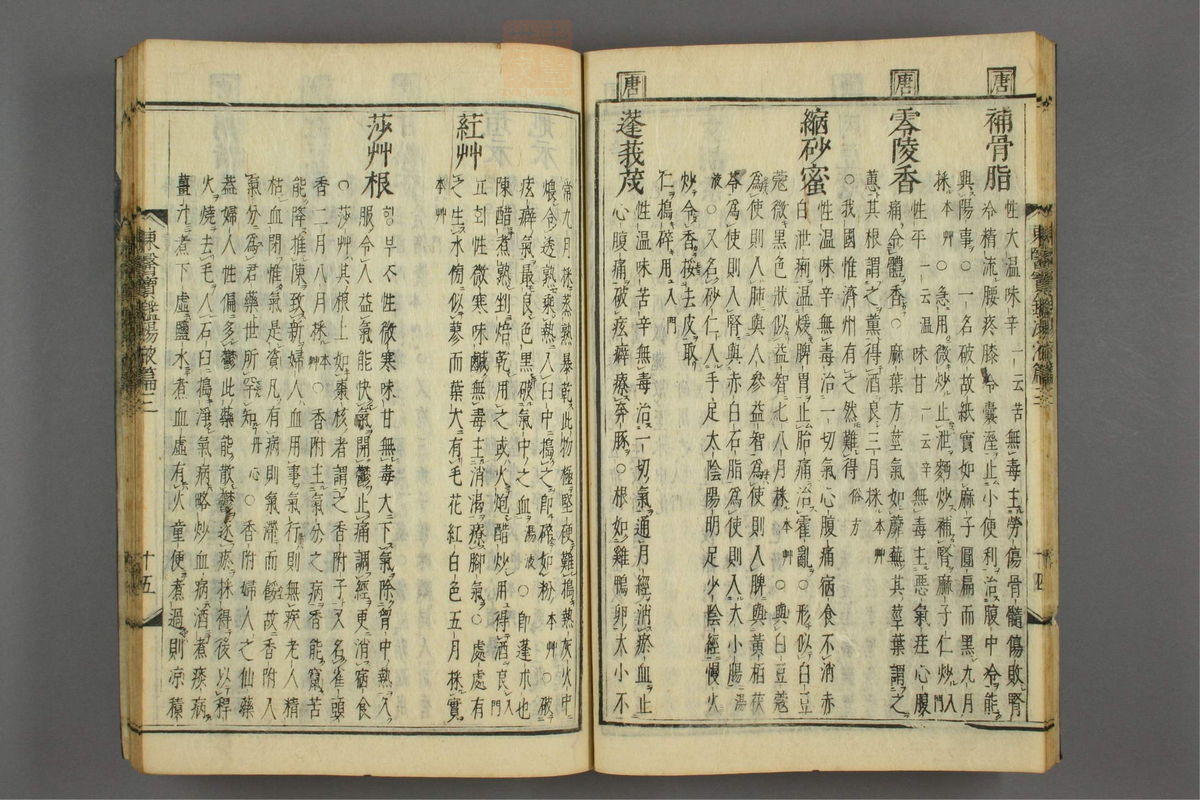 唐
補骨脂
性大温味辛一云苦無毒主勞傷骨髓傷敗腎
冷精流腰疼膝冷囊溼止小便利治腹中冷能
興陽事○一名破故紙實如麻子圓扁而黑九月
採本艸○急用微炒止泄麪炒補腎麻子仁炒入門
唐
零陵香
性平一云温味甘一云辛無毒主惡氣疰心腹
痛令體香○麻葉方莖氣如蘼蕪其莖葉謂之
蕙其根謂之薰得酒良三月採本艸
○我國惟濟州有之然難得俗方
縮砂蜜
性温味辛無毒治一切氣心腹痛宿食不消赤
白泄痢温煖脾胃止胎痛治霍亂○形似白豆
蔻微黑色狀似益智七八月採本艸○與白豆蔻
爲使則入肺與人參益智爲使則入脾與黃栢茯
苓爲使則入腎與赤白石脂爲使則入大小腸湯
液○又名砂仁入手足太陰陽明足少陰經慢火
炒令香挼去皮取
仁搗碎用入門
唐
蓬莪茂
性温味苦辛無毒治一切氣通月經消瘀血止
心腹痛破痃癖療奔豚○根如雞鴨卵大小不
常九月採蒸熟暴乾此物極堅硬難搗熱灰火中
煨令透熟乘熱入臼中搗之即碎如粉本艸○破
痃癖氣最良色黑破氣中之血湯液○即蓬朮也
陳醋煮熟剉焙乾用之或火炮醋炒用得酒良入門
葒艸
性微寒味鹹無毒主消渴療脚氣○處處有
之生水傍似蓼而葉大有毛花紅白色五月採實
本艸
莎艸根
性微寒味甘無毒大下氣除胷中熱久
服令人益氣能快氣開鬱止痛調經更消宿食
○莎艸其根上如棗核者謂之香附子又名雀頭
香二月八月採本艸○香附主氣分之病香能竄苦
能降推陳致新婦人血用事氣行則無疾老人精
枯血閉惟氣是資凡有病則氣滯而餒故香附入
氣分爲君藥世所罕知丹心○香附婦人之仙藥
蓋婦人性偏多鬱此藥能散鬱逐瘀採得後以稈
火燒去毛入石臼搗淨氣病略炒血病酒煮痰病
薑汁煮下虛鹽水煮血虛有火童便煮過則凉積
東醫寶鑑湯液篇三
十五
十四